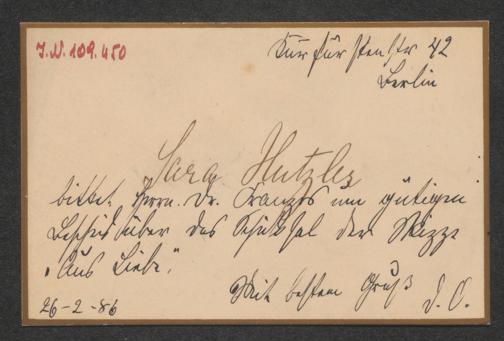 J.N. 109.450
Kurfürstenstr 42
Berlin
Sara Hutzler
bittet Herrn Dr. Franzos um gütigen
Bescheid über das Schicksal der Skizze
„Aus Liebe“.
Mit bestem Gruß
26-2-86